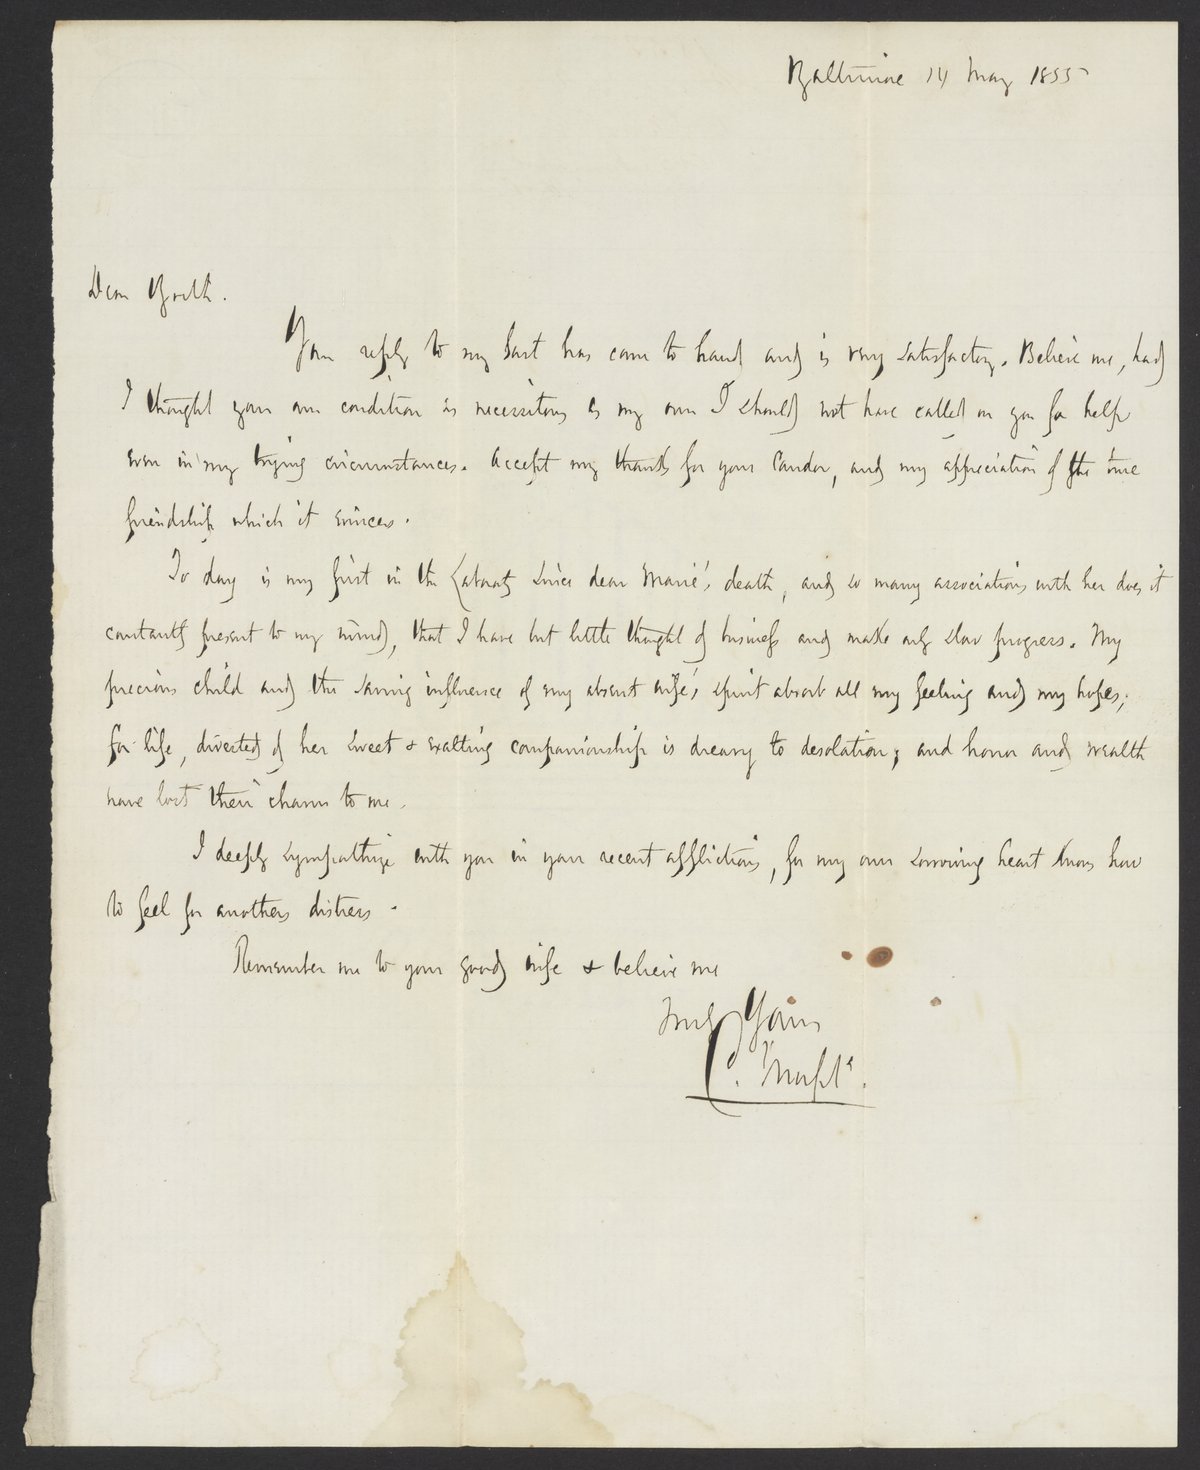 Baltimore 14 May 1855
Dear Booth.
Your reply to my last has come to hand and is very satisfactory. Believe me, had
I thought your own condition as necessitous as my own I should not have called on you for help
even in my trying circumstances. Accept my thanks for your candor, and my appreciation of the true
friendship which it evinces.
To day is my first in the Laboraty since dear Marie's death, and so many associations with her does it
constantly present to my mind, that I have but little thought of business and make only slow progress. My
precious child and the saving influence of my absent wife's spirit absorb all my feeling and my hopes;
for life, diverted of her sweet & exalting companionship is dreary to desolation; and honor and wealth
have lost their charm to me.
I deeply sympathize with you in your recent afflictions, for my own sorrowing heart knows how
to feel for anothers distress.
Remember me to your good wife & believe me
Truly Yours
C. Morfit.